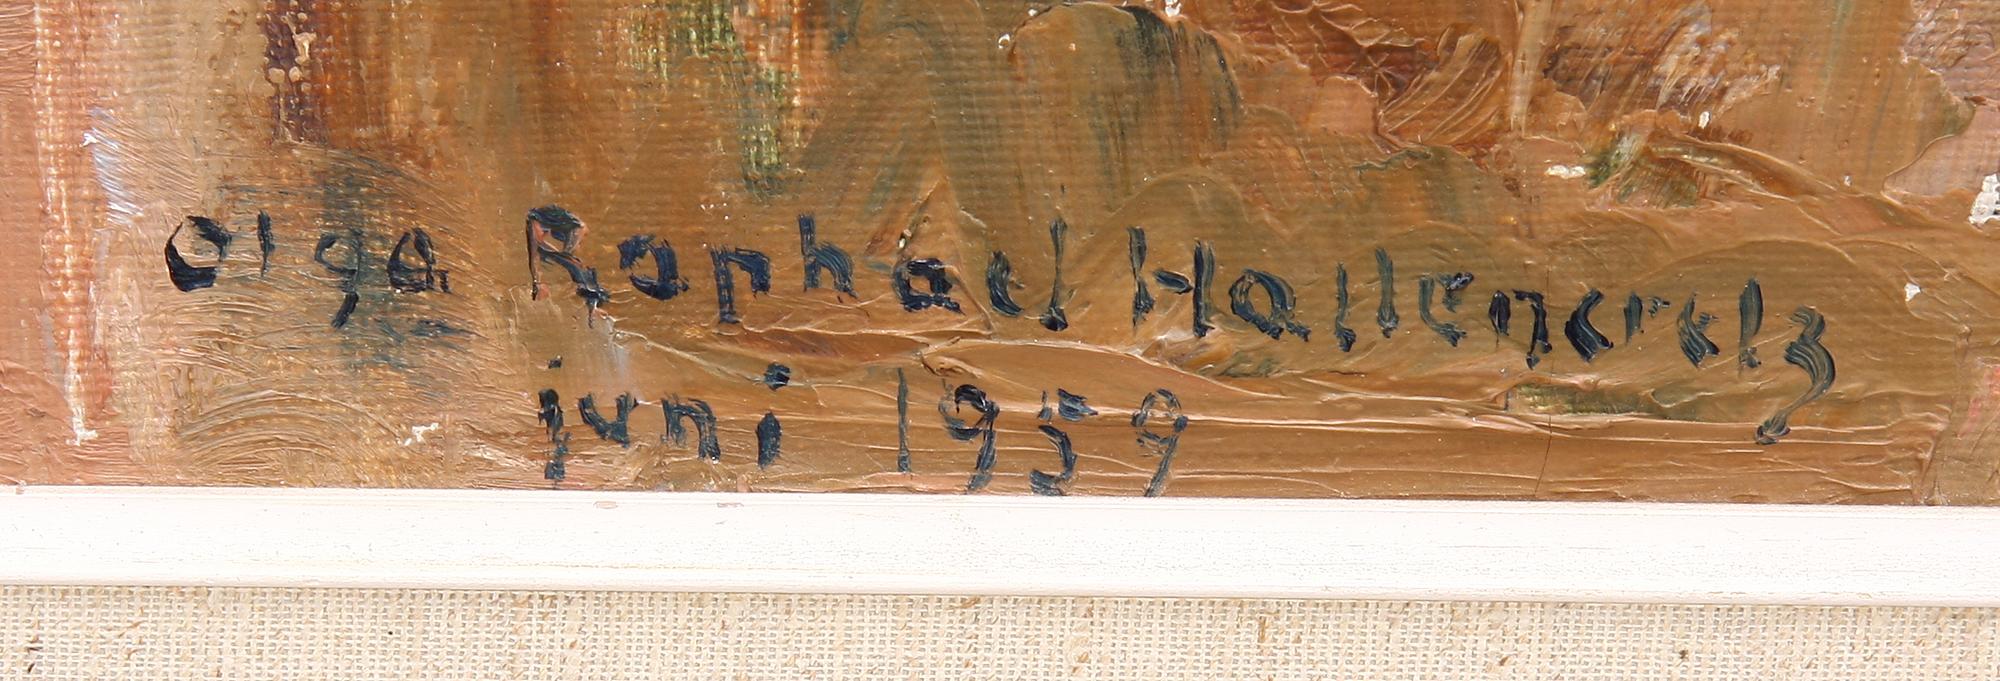 Olga Raphael Hallencreutz
juni 1959